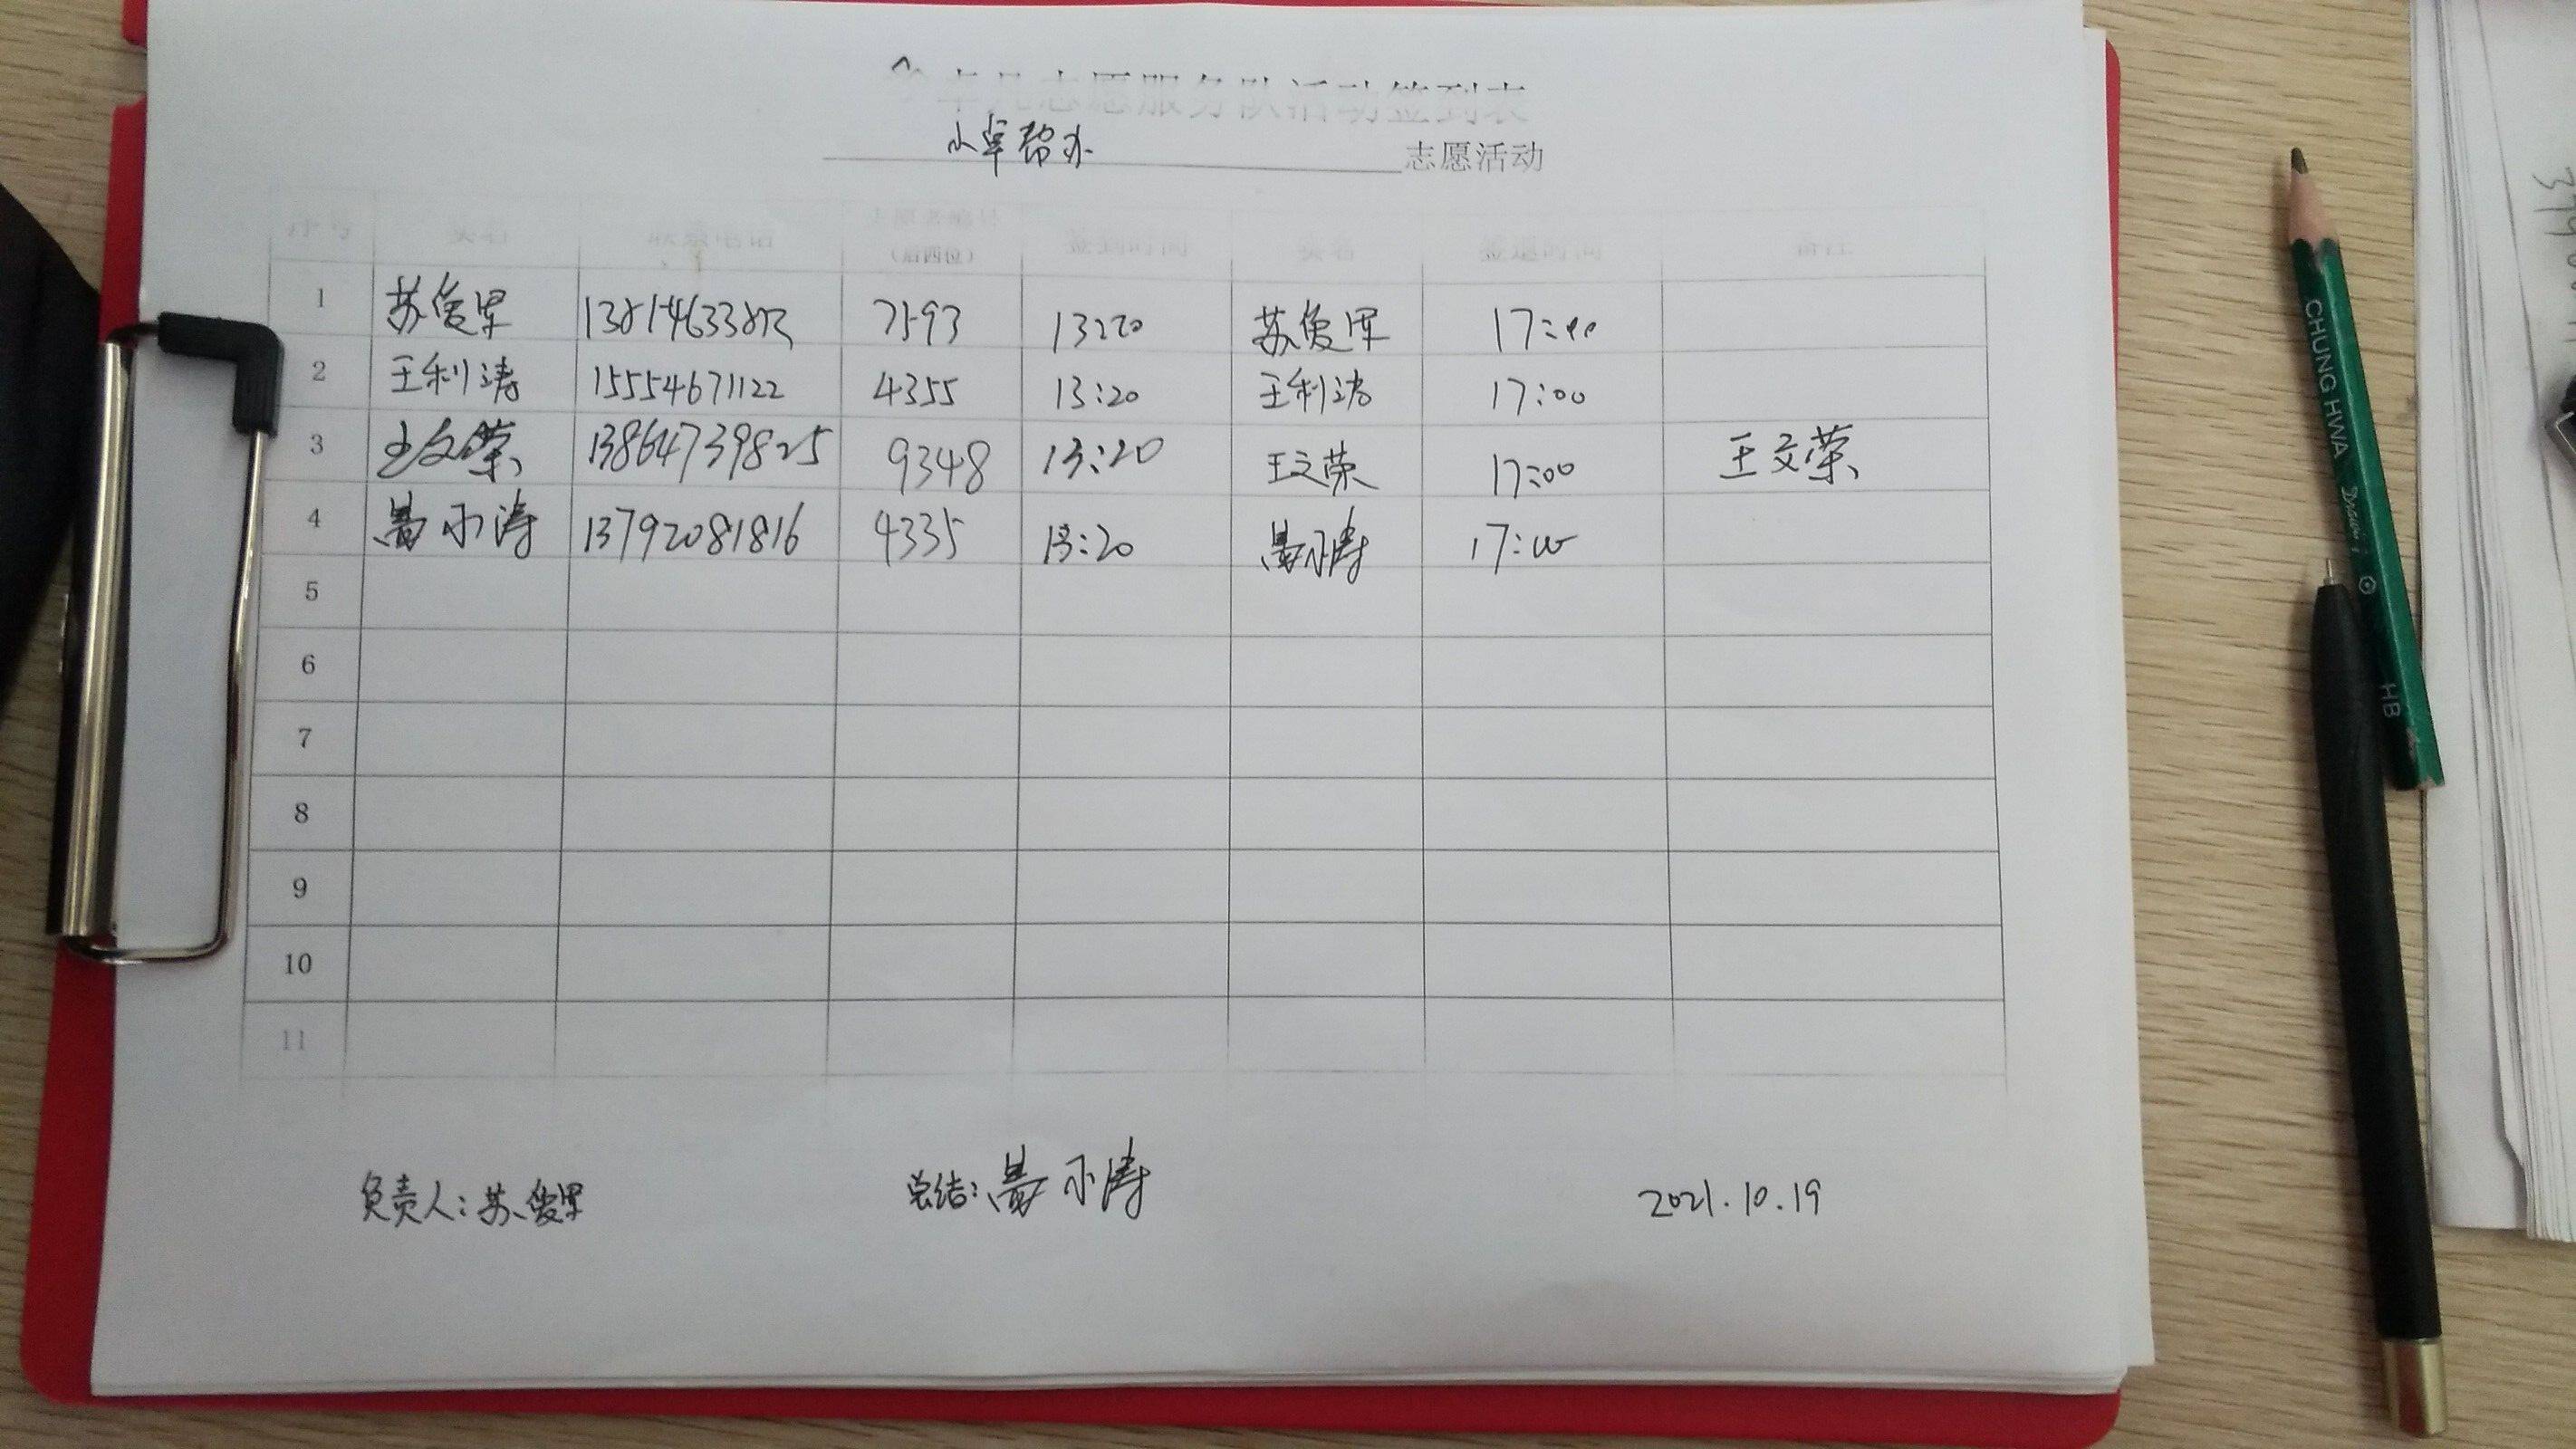 卓凡志愿服务队活动签到表
小卓帮办 志愿活动
序号 姓名 联系电话 (后四位) 签到时间 姓名 签退时间 备注
1 苏俊军 7593 13:20 苏俊军 17:00
2 王利涛 15554671122 4355 13:20 王利涛 17:00
3 王文荣 13864739825 9348 13:20 王文荣 17:00 王文荣
4 13792081816 4335 13:20 17:00
5
6
7
8
9
10
11
负责人:苏俊军 总结: 2021.10.19
CHUNG HWA Drawing HB